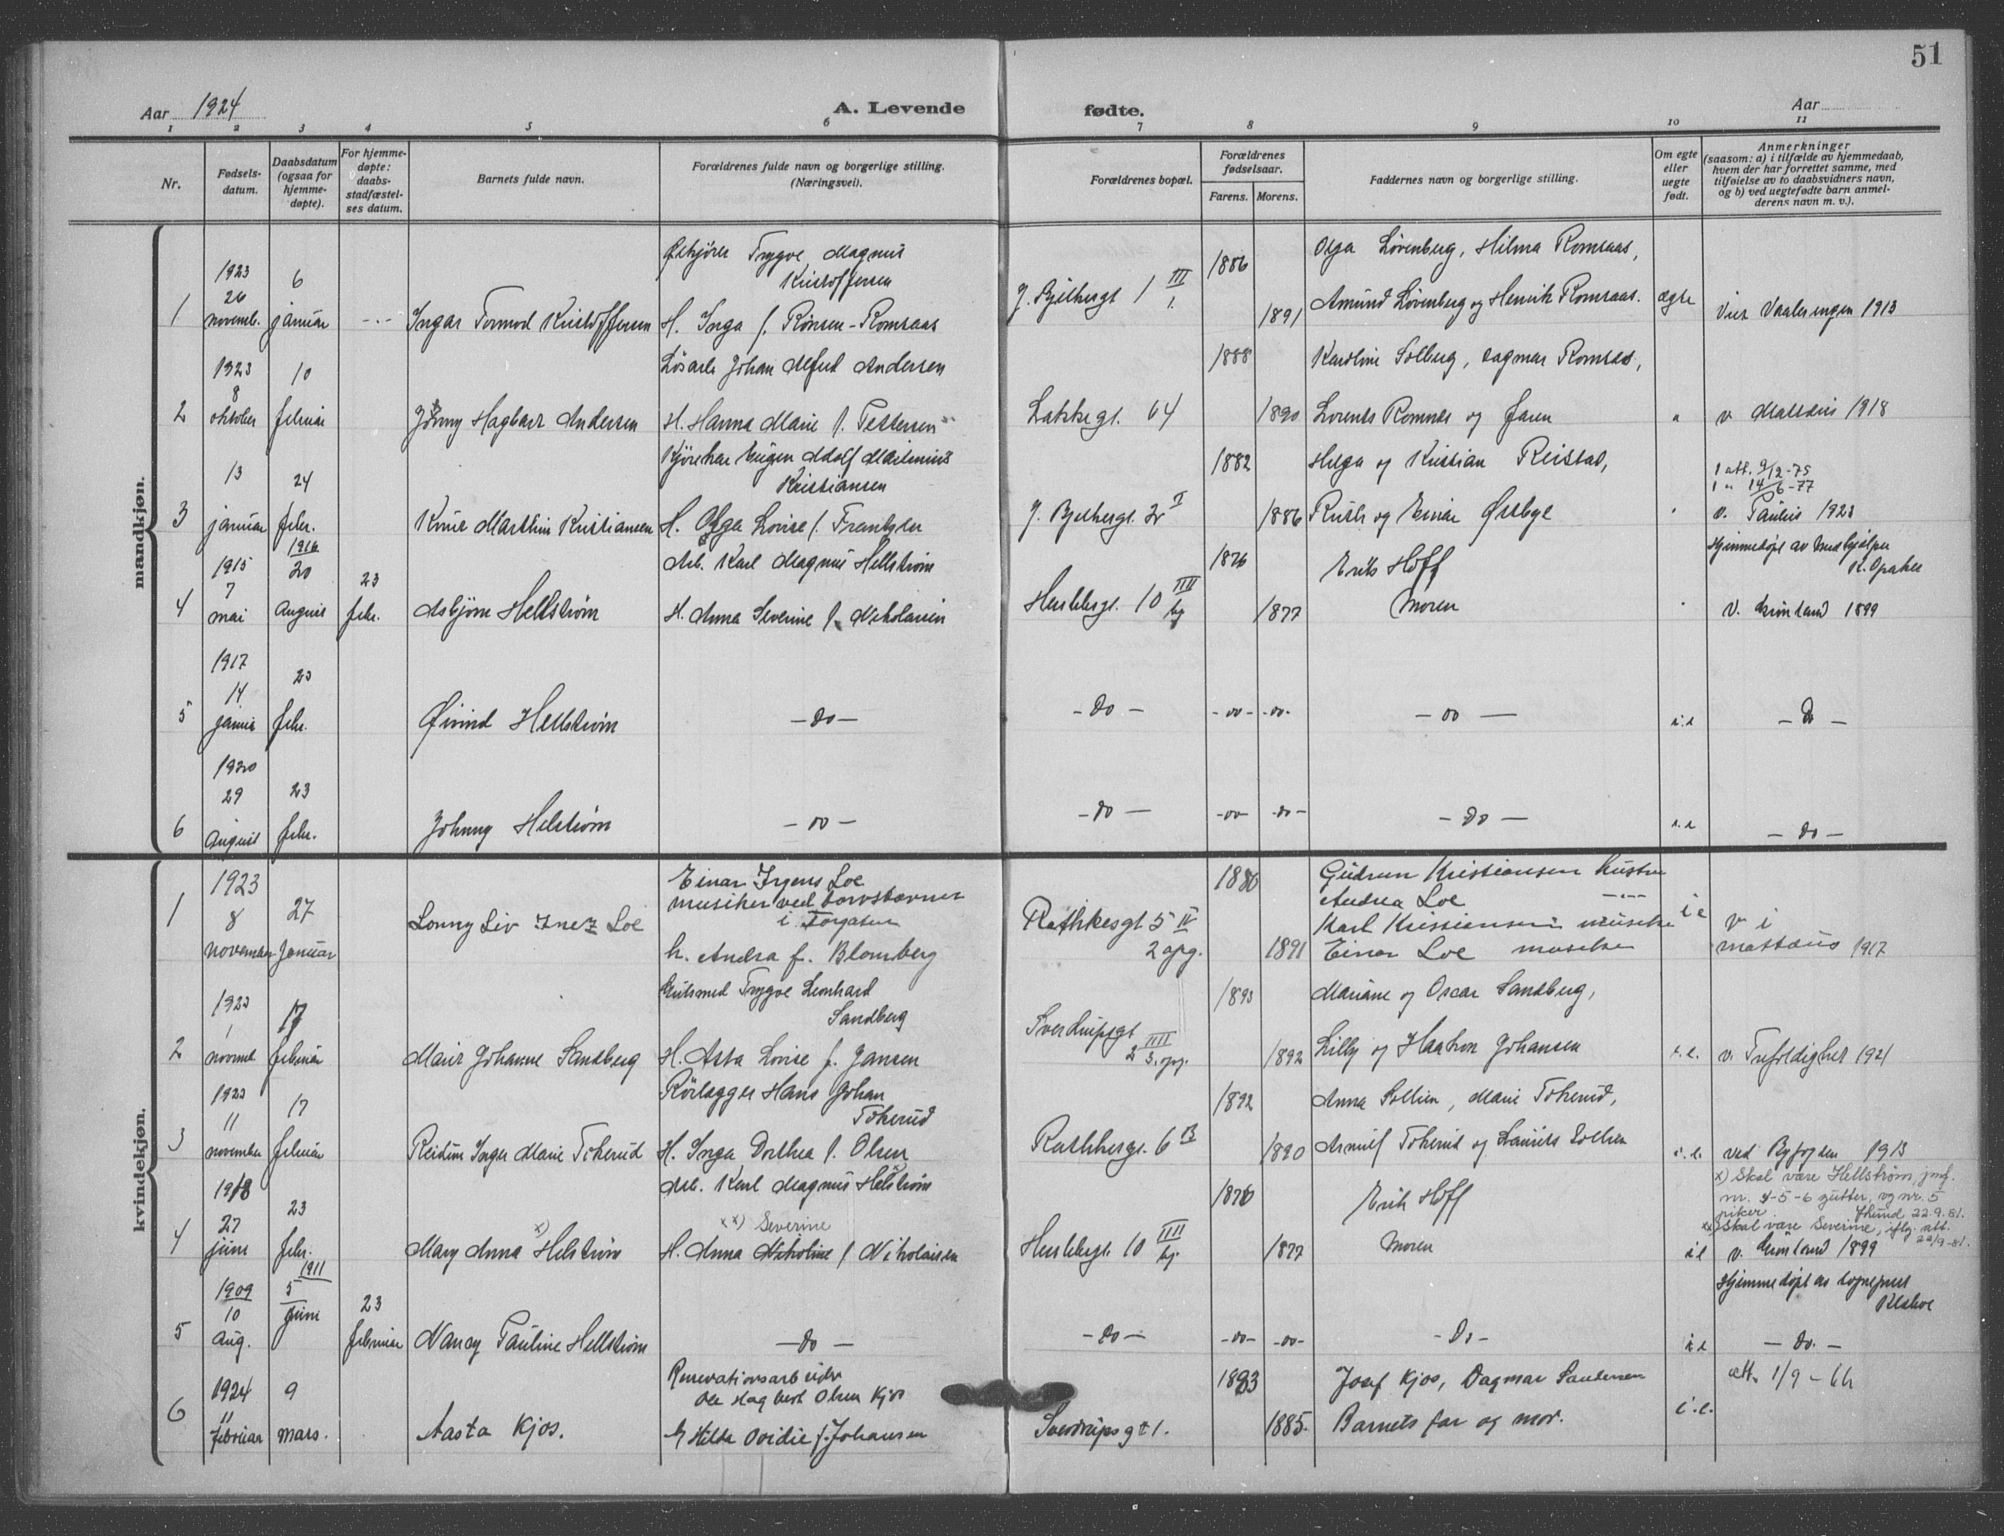 51
Aar 1924
A. Levende fødte.
Aar
1 2 3 4 5 6 7 8 9 10 11
Nr.
Fødsels-
datum.
Daabsdatum
(ogsaa for
hjemme-
døpte).
For hjemme-
døpte:
daabs-
stadfæstel-
ses datum.
Barnets fulde navn.
Forældrenes fulde navn og borgerlige stilling.
(Næringsvei).
Forældrenes bopæl.
Forældrenes
fødselsaar.
Farens. Morens.
Faddernes navn og borgerlige stilling.
Om egte
eller
uegte
født.
Anmerkninger
(saasom: a) i tilfælde av hjemmedaab,
hvem der har forrettet samme, med
tilføielse av to daabsvidners navn,
og b) ved uegtefødte barn anmel-
derens navn m. v.).
mandkjøn.
1
1923
26
novemb.
6
januar
Ingar Tormod Kristoffersen
Trygve Magnus
Kristoffersen
H. Inga f. Rønsen-Romsaas
1 III
1886
1891
Olga Løvenberg, Hilma Romsaas,
Amund Løvenberg og Henrik Romsaas.
egte
Viet Vaalerengen 1913
2
1923
8
oktober
10
februar
Hagbart Andersen
Johan Alfred Andersen
H. Hanna Marie f. Pettersen
Lakkegt. 64
1888
1890
Karoline Solberg, Dagmar Romsaas,
Lorents Romsaas og faren
v. Matteus 1918
3
13
januar
24
febr.
Knut Marthin Kristiansen
Eugen Adolf
Kristiansen
H. Olga Lovise f. Frantzen
1882
1886
Helga og Kristian Reistad,
Ruth og Einar Østbye
1 att. 9/2-75
1 " 14/6-77
v. Paulus 1923
4
1915
7
mai
1916
20
August
23
febr.
Asbjørn Hellstrøm
Arb. Karl Magnus Hellstrøm
H. Anna Severine f. Nikolaisen
Herslebsgt. 10 IIII
1876
1877
Erik Hoff
Moren
Hjemmedøpt av
v. Grønland 1899
5
1917
14
23
febr.
Øivind Hellstrøm
- do -
- do -
- do -
- do -
- do -
i.e
- do -
6
1920
29
August
23
febr.
Johnny Helstrøm
- do -
- do -
- do -
- do -
- do -
i.e
- do -
kvindekjøn.
1
1923
8
november
27
Januar
Lonny Liv Inez Loe
Einar Loe
musiker ved
i Torgaten
h. Andra f. Blomberg
Rathkesgt 5 IV
2 opg.
1880
1891
Gudrun Kristiansen hustru
Andrea Loe
Karl Kristiansen musiker
Einar Loe musiker
i e
v i
mattæus 1917
2
1923
1
novemb.
17
februar
Johanne Sandberg
Gulsmed Trygve Leonhard
Sandberg
H. Asta Lovise f. Jansen
Sverdrupsgt
2 IIII
3. opg.
1893
1892
Mariane og Oscar Sandberg,
Lilly og Haakon Johansen
i.e.
v. Trefoldighet 1921
3
1923
11
november
17
februar
Reidun Inger Marie Tokerud
Rørlægger Hans Johan
Tokerud
H. Inga Dorthea f. Olsen
Rathkesgt. 6 B
1892
1890
Anna Sollien, Marie Tokerud,
Tokerud og Laurits Sollien
i.e.
ved Byfogden 1913
4
1918
27
juni
23
febr.
Mary Anna x) Helstrøm
Arb. Karl Magnus Helstrøm
xx) Severine
H. Anna Nikoline f. Nikolaisen
Herslebsgt 10 IIII
1876
1877
Erik Hoff
Moren
i.e
x) Skal være Hellstrøm, jmf.
nr. 4-5-6 gutter, og nr. 5
piker. 22.9.81.
xx) Skal være Severine, iflg. att.
22/9-81.
v. Grønland 1899
5
1909
10
Aug.
1911
5
Juni
23
februar
Nancy Pauline Hellstrøm
- do -
- do -
- do -
- do -
- do -
i.e
Hjemmedøpt av sogneprest
- do. -
6
1924
11
februar
9
mars.
Aasta Kjos.
Renovationsarbeider
Ole Hagbert Olsen Kjos
Hilda Ovidie f. Johansen
Sverdrupsgt 1.
1883
1885.
Josef Kjos, Dagmar
Barnets far og mor.
i.e.
att. 1/9-66